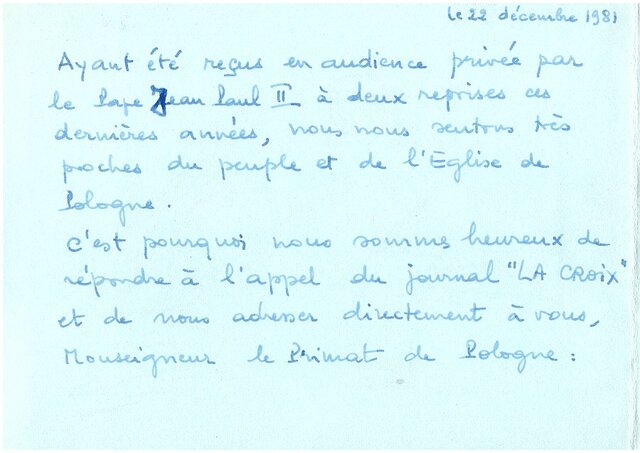 le 22 décembre 1981
Ayant été reçus en audience privée par
le Pape Jean Paul II à deux reprises ces
dernières années, nous nous sentons très
proches du peuple et de l'Eglise de
Pologne.
C'est pourquoi nous sommes heureux de
répondre à l'appel du journal "LA CROIX"
et de nous adresser directement à vous,
Monseigneur le Primat de Pologne :